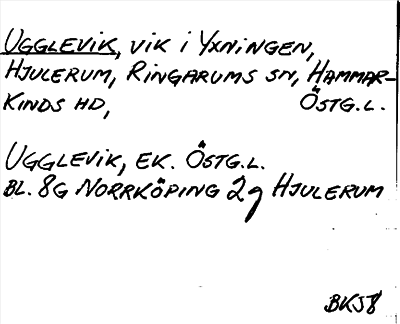 UGGLEVIK, VIK I YXNINGEN,
HJULERUM, RINGARUMS SN, HAMMAR-
KINDS HD, ÖSTG.L.
UGGLEVIK, EK. ÖSTG.L.
BL. 8G NORRKÖPING 2g HJULERUM
BKJ8